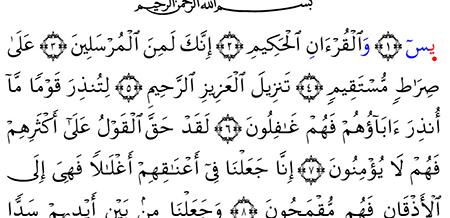 بسم الله الرحمن الرحيم
يسٓ ﴿١﴾ وَٱلْقُرْءَانِ ٱلْحَكِيمِ ﴿٢﴾ إِنَّكَ لَمِنَ ٱلْمُرْسَلِينَ ﴿٣﴾ عَلَىٰ
صِرَٰطٍ مُّسْتَقِيمٍ ﴿٤﴾ تَنزِيلَ ٱلْعَزِيزِ ٱلرَّحِيمِ ﴿٥﴾ لِتُنذِرَ قَوْمًا مَّآ
أُنذِرَ ءَابَآؤُهُمْ فَهُمْ غَٰفِلُونَ ﴿٦﴾ لَقَدْ حَقَّ ٱلْقَوْلُ عَلَىٰٓ أَكْثَرِهِمْ
فَهُمْ لَا يُؤْمِنُونَ ﴿٧﴾ إِنَّا جَعَلْنَا فِىٓ أَعْنَٰقِهِمْ أَغْلَٰلًا فَهِىَ إِلَى
ٱلْأَذْقَانِ فَهُم مُّقْمَحُونَ ﴿٨﴾ وَجَعَلْنَا مِنۢ بَيْنِ أَيْدِيهِمْ سَدًّا